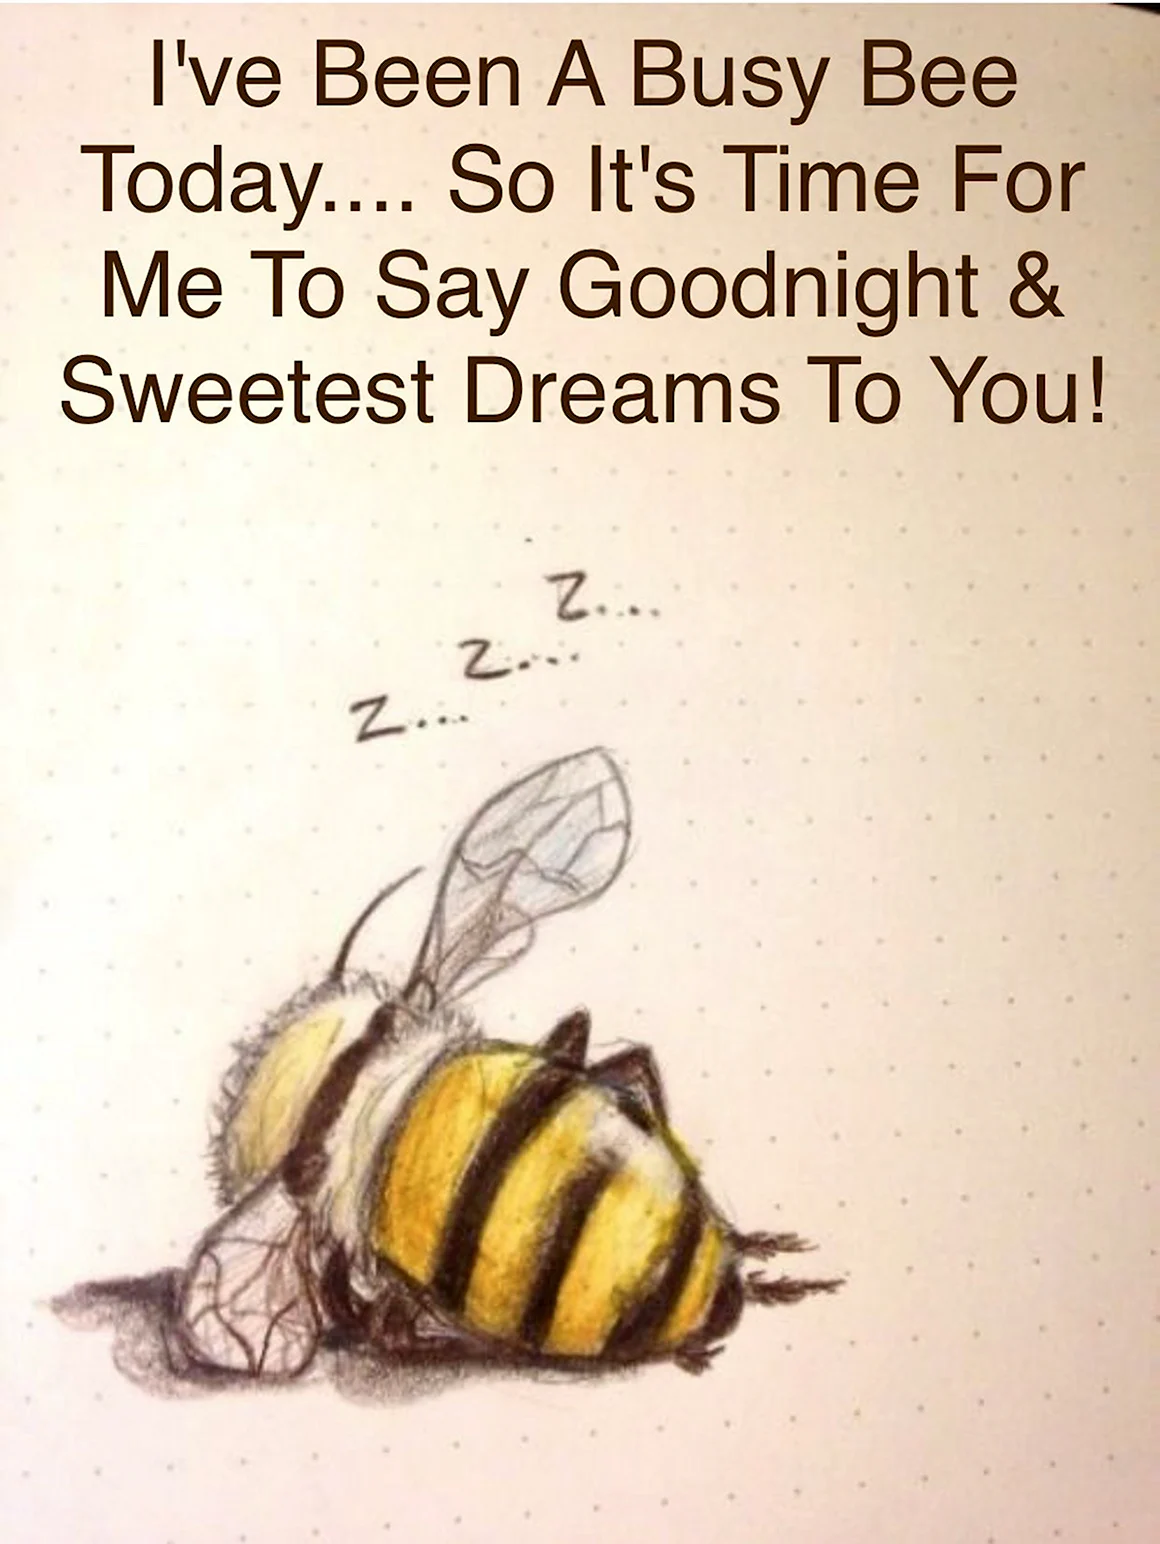 I've Been A Busy Bee
Today.... So It's Time For
Me To Say Goodnight &
Sweetest Dreams To You!
z....
z....
z....